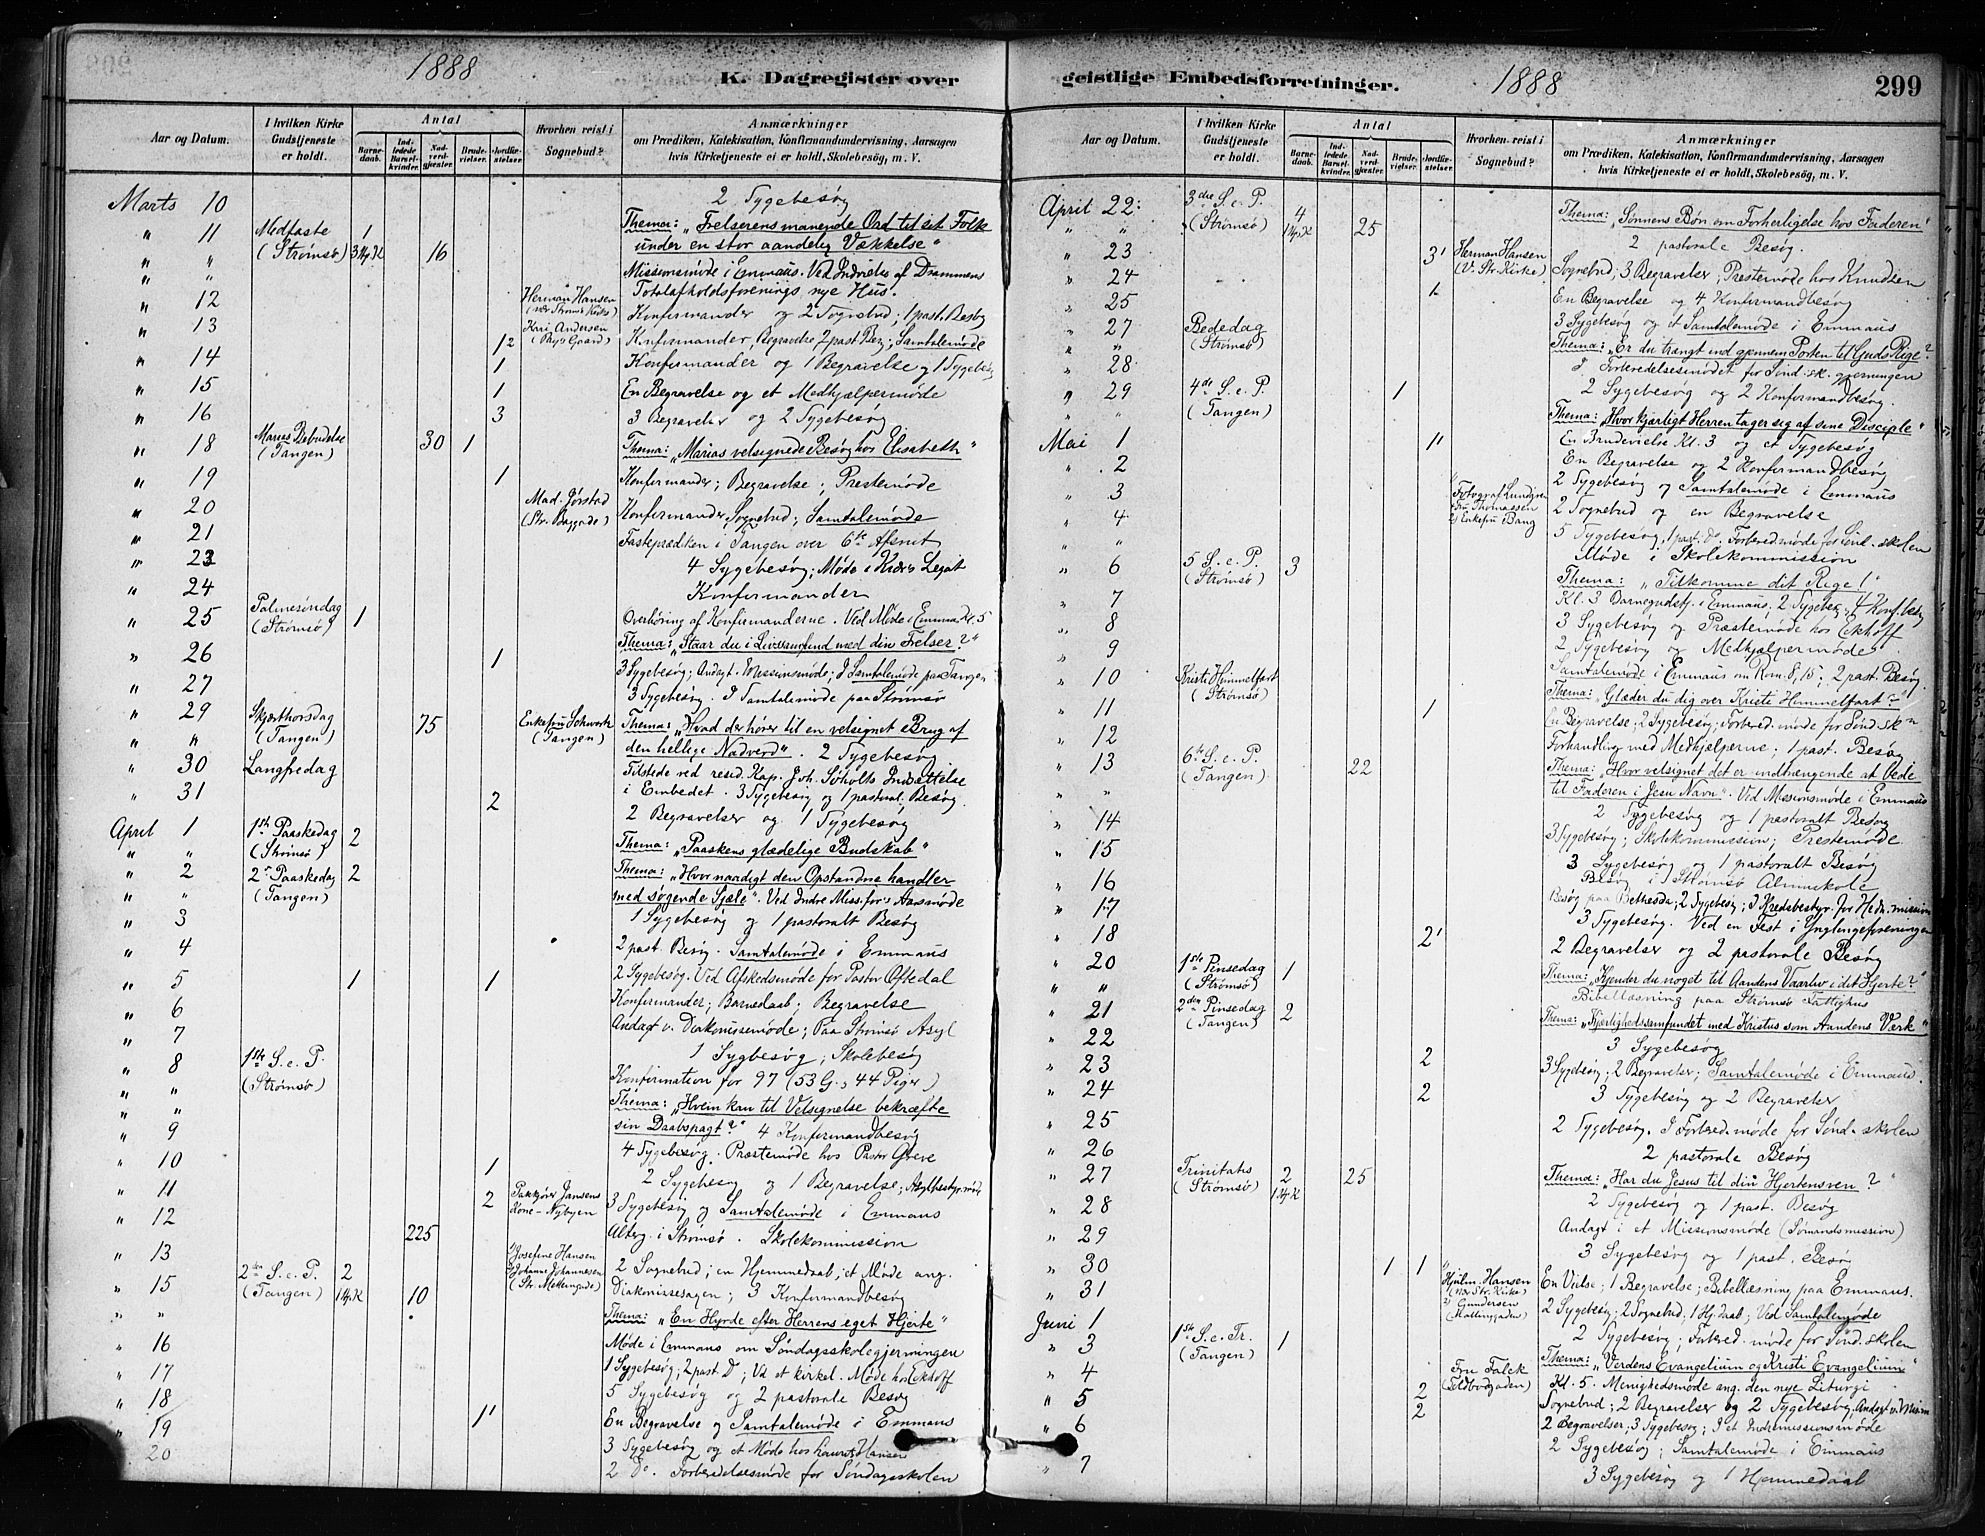 1888
K. Dagregister over
Aar og Datum.
I hvilken Kirke Gudstjeneste er holdt.
Antal
Barne-daab.
Ind-ledede Barsel-kvinder.
Nad-verd-gjester.
Brude-vielser.
Jordfæ-stelser.
Hvorhen reist i Sognebud?
Anmærkninger
om Prædiken, Katekisation, Konfirmandundervisning, Aarsagen
hvis Kirketjeneste ei er holdt, Skolebesøg, m. V.
Marts 10 2 Sygebesøg
" 11 Midfaste 1 Thema: "Frelserens manende Ord til sit Folk
" " (Strømsø) 3 16 under en stor aandelig Vækkelse"
" " Missionsmøde i Emmaus. Ved Indvielse af Drammens
Totalafholdsforenings nye Hus.
" 12 Herman Hansen Konfirmander og 2 Sognebud; 1 past. Besøg
" 13 Kari Andersen 12 Konfirmander, Begravelse 2 past Bes; Samtalemøde
" 14 1 Konfirmander og 1 Begravelse og 1 Sygebesøg
" 15 1 En Begravelse og et Medhjælpermøde
" 16 3 3 Begravelser og 2 Sygebesøg
" 18 Marias Bebudelse (Tangen) 30 1 Thema: "Marias velsignede Besøg hos Elisabeth"
" 19 1 Konfirmander; Begravelse; Prestemøde
" 20 Mad. Jørstad (Str. Baggade) Konfirmander, Sognebud; Samtalemøde
" 21 Fasteprædiken i Tangen over 6te Afsnit
" 23 4 Sygebesøg; Møde i Kiærs Legat
" 24 Konfirmander
" 25 Palmesøndag (Strømsø) 1 Overhøring af Konfirmanderne. Ved Møde i Emmaus Kl. 5
Thema: "Staar du i Livssamfund med din Frelser?"
" 26 1 3 Sygebesøg; Andagt i Missionsmøde; I Samtalemøde paa Tangen
" 27 3 Sygebesøg. I Samtalemøde paa Strømsø
" 29 Skjærthorsdag 75 Enkefru Schwartz Thema: "Hvad der hører til en velsignet Brug af
" " (Tangen) (Tangen) den hellige Nadverd". 2 Sygebesøg
" 30 Langfredag Tilstede ved resid. Kap. Joh. Søholts Indsættelse
" 31 2 i Embedet. 3 Sygebesøg og 1 pastoral. Besøg.
2 Begravelser og 1 Sygebesøg
April 1 1ste Paaskedag 2
" " (Strømsø) Thema: "Paaskens glædelige Budskab"
" 2 2den Paaskedag 2 Thema: "Hvor naadigt den Opstandne handler
" " (Tangen) med søgende Sjæle". Ved Indre Miss.for's Aarsmøde
" 3 1 Sygebesøg og 1 pastoralt Besøg
" 4 2 past. Besøg. Samtalemøde i Emmaus
" 5 1 1 2 Sygebesøg. Ved Afskedsmøde for Pastor Oftedal
" 6 Konfirmander; Barnedaab; Begravelse
" 7 Andagt v. Diakonissemøde; Paa Strømsø Asyl
1 Sygbesøg; Skolebesøg
" 8 1ste S. e P.
" " (Strømsø) Konfirmation for 97 (53 G., 44 Piger)
" " Thema: "Hvem kan til Velsignelse bekræfte
" 9 sin Daabspagt?" 4 Konfirmandbesøg
" 10 1 4 Sygebesøg. Præstemøde hos Pastor Greve
" 11 2 Jansens Kone - Nybyen 2 Sygebesøg og 1 Begravelse; Asylbestyr.møde
" 12 3 Sygebesøg og Samtalemøde i Emmaus
225 Alterg. i Strømsø. Skolekommission
" 13 Josefine Hansen
Johanne Johannesen 2 Sognebud; en Hjemmedaab; et Møde ang.
" 15 2den S. e P. 2 (Tangen) 10 Diakonissesagen; 3 Konfirmandbesøg
" " Thema: "En Hyrde efter Herrens eget Hjerte"
" 16 Møde i Emmaus om Søndagsskolegjerningen
" 17 1 Sygebesøg; 2 past. Do; Ved et kirkel. Møde hos Eckhoff
" 18 5 Sygebesøg og 2 pastorale Besøg
" 19 1 En Begravelse og Samtalemøde i Emmaus
20 3 Sygebesøg og et Møde hos Hansen
2 Do. Forberedelsesmøde for Søndagsskolen
geistlige Embedsforretninger.
1888
299
Aar og Datum.
I hvilken Kirke Gudstjeneste er holdt.
Antal
Barne-daab.
Ind-ledede Barsel-kvinder.
Nad-verd-gjester.
Brude-vielser.
Jordfæ-stelser.
Hvorhen reist i Sognebud?
Anmærkninger
om Prædiken, Katekisation, Konfirmandundervisning, Aarsagen
hvis Kirketjeneste ei er holdt, Skolebesøg, m. V.
April 22 3die S. e P. 4 Thema: "Sønnens Bøn om Forherligelse hos Faderen"
" " (Strømsø) 25 2 pastorale Besøg.
" 23 3 Herman Hansen (v. Str. Kirke) Sognebud; 3 Begravelser; Prestemøde hos Knudsen
" 24 1 En Begravelse og 4 Konfirmandbesøg
" 25 3 Sygebesøg og et Samtalemøde i Emmaus
" 27 Bededag (Strømsø) Thema: "Er du trængt ind gjennem Porten til Guds Rige?"
" " Forberedelsesmødet for Sønd.sk. gjerningen
" 28 2 Sygebesøg og 2 Konfirmandbesøg.
" 29 4de S. e P. 1 Thema: "Hvor kjærligt Herren tager sig af sine Disciple"
" " (Tangen) En Brudevielse Kl. 3 og et Sygebesøg
Mai 1 1 En Begravelse og 2 Konfirmandbesøg
" 2 2 Sygebesøg og Samtalemøde i Emmaus
" 3 Fotograf Lundgren
Fru Thomassen 2 Sognebud og en Begravelse
" 4 Enkefru Bang 5 Sygebesøg, 1 past. Do. Forbered.møde for Sønd.skolen
" " Møde i Skolekommission
" 6 5 S. e. P. (Strømsø) 3 Thema: "Tilkomme dit Rige!"
" 7 Kl. 3 Barnegudstj. i Emmaus; 2 Sygebes., 4 Konf.besøg
" 8 3 Sygebesøg og Præstemøde hos Eckhoff
" 9 2 Sygebesøg og Medhjælpermøde
" 10 Kristi Himmelfart (Strømsø) Samtalemøde i Emmaus om Rom. 8, 15; 2 past. Besøg
Thema: "Glæder du dig over Kristi Himmelfart?"
" 11 1 En Begravelse; 2 Sygebesøg; Forbered. møde for Sønd.sk.
" 12 Forhandling med Medhjælperne; 1 past. Besøg
" 13 6te S. e P. (Tangen) 22 Thema: "Hvor velsignet det er indtrængende at bede
" " til Faderen i Jesu Navn". Ved Missionsmøde i Emmaus
" 14 2 Sygebesøg og 1 pastoralt Besøg
" 15 3 Sygebesøg; Skolekommission; Prestemøde
3 Sygebesøg og 1 pastoralt Besøg
" 16 Besøg i Strømsø Almuskole
" 17 Besøg paa Bethesda; 2 Sygebesøg; I Kredsbestyr. for Hedn.mission
3 Sygebesøg. Ved en Fest i Ynglingeforeningen
" 18 2 2 Begravelser og 2 pastorale Besøg
" 20 1ste Pinsedag 1 Thema: "Kjender du noget til Aandens Vaarliv i dit Hjerte?"
" " (Strømsø) Bibellæsning paa Strømsø Fattighus
" 21 2den Pinsedag (Tangen) 2 Thema: "Kjærlighedssamfundet med Kristus som Aandens Værk"
" 22 3 Sygebesøg
" 23 2 3 Sygebesøg; 2 Begravelser; Samtalemøde i Emmaus
" 24 2 3 Sygebesøg og 2 Begravelser
" 25 2 Sygebesøg. I Forbered.møde for Sønd.skolen
" 26 2 pastorale Besøg
" 27 Trinitatis (Strømsø) 2 25 Thema: "Har du Jesus til din Hjertensven?"
" 28 2 Sygebesøg og 1 past. Besøg
" 29 Andagt i et Missionsmøde (Sømandsmission)
3 Sygebesøg og 1 past. Besøg
" 30 1 1 Hjalm. Hansen En Vielse; 1 Begravelse; Bibellæsning paa Emmaus.
" 31 Gundersen 2 Sygebesøg; 2 Sognebud; 1 Hj.daab; Ved Samtalemøde
Juni 1 2 Sygebesøg; Forbered. møde for Sønd.skolen
" 3 1ste S. e. Tr. (Tangen) 1 Thema: "Verdens Evangelium og Kristi Evangelium"
" 4 Fru Falck Kl. 5. Menighedsmøde ang. den nye Liturgi
" 5 2 Sognebud; 2 Begravelser og 2 Sygebesøg. Andagt v. Mism
" 6 2 2 Begravelser; 3 Sygebesøg; I et Indremissionsmøde
2 Sygebesøg; Samtalemøde i Emmaus
" 7 3 Sygebesøg og 1 Hjemmedaab